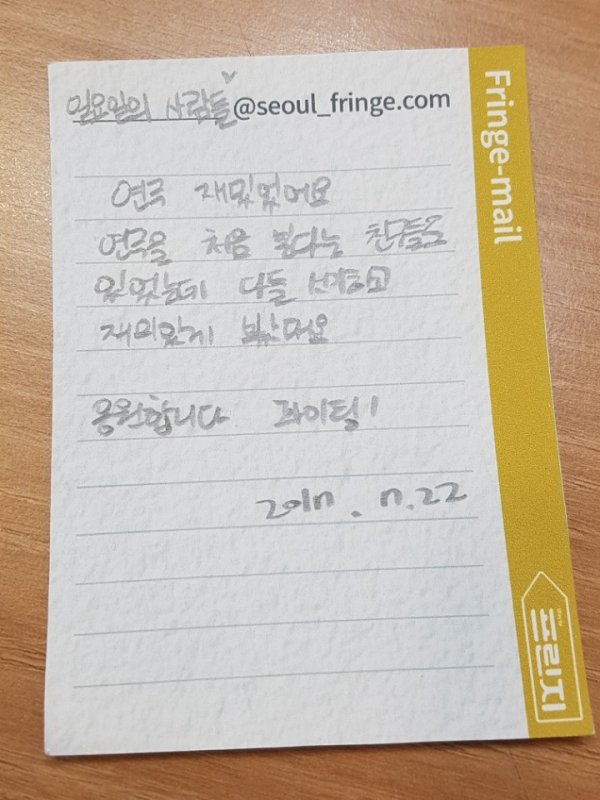 일요일의 사람들♡@seoul_fringe.com
연극 재밌었어요
연극을 처음 본다는 친구들도
있었는데 다들
재미있게 봤대요
응원합니다 화이팅!
2017. 7.22
Fringe-mail
프린지